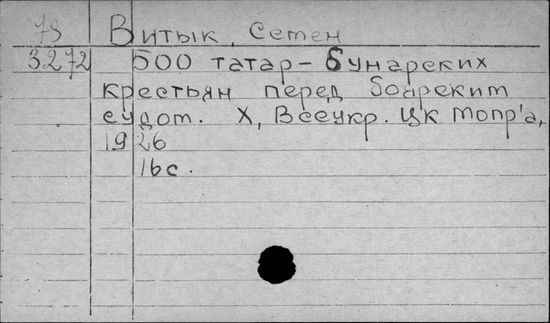 75 Витык, Семен
3272 500 татар-бунарских
крестьян перед боярским
судом. Х, Всеукр. ЦК Мопр'а,
1926
16с.